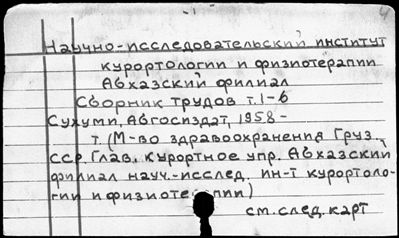 - 1 -
Научно-исследовательский институт
курортологии и физиотерапии
Абхазский филиал
Сборник трудов т.1-6
Сухуми, Абгосиздат, 1958-
т. (М-во здравоохранения Груз.
ССР. Глав. курортное упр. Абхазский
филиал науч.-исслед. ин-т курортоло-
гии и физиотерапии)
см. след. карт